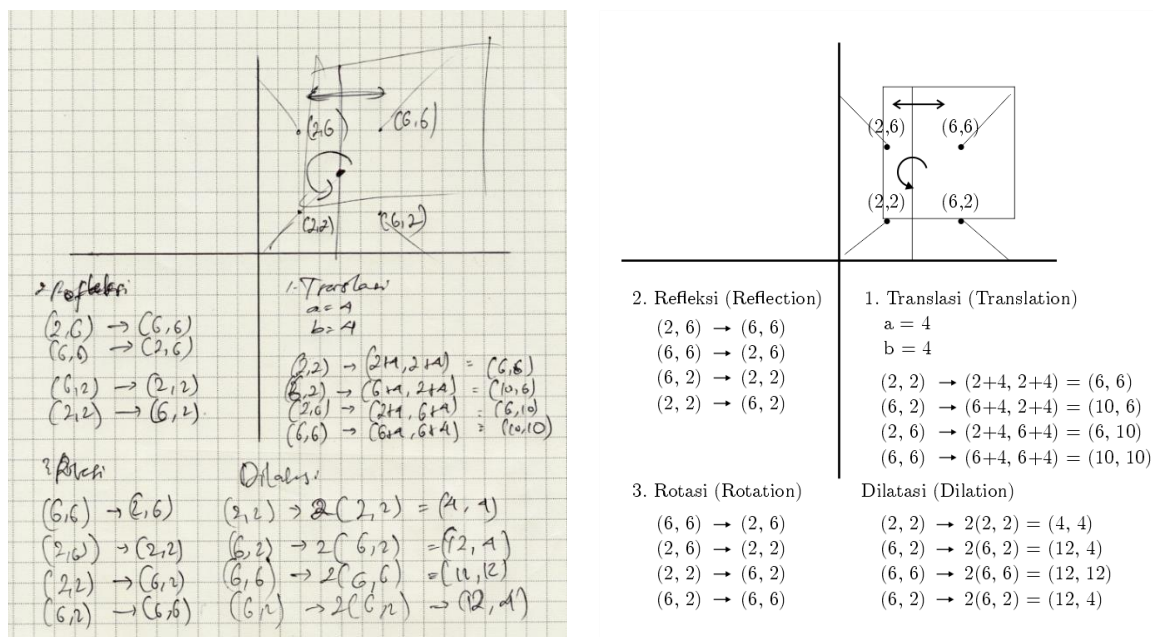 (2,6)
(6,6)
(2,2)
(6,2)
2. Refleksi
(2,6) → (6,6)
(6,6) → (2,6)
(6,2) → (2,2)
(2,2) → (6,2)
1. Translasi
a = 4
b = 4
(2,2) → (2+4, 2+4) = (6,6)
(6,2) → (6+4, 2+4) = (10,6)
(2,6) → (2+4, 6+4) = (6,10)
(6,6) → (6+4, 6+4) = (10,10)
3. Rotasi
(6,6) → (2,6)
(2,6) → (2,2)
(2,2) → (6,2)
(6,2) → (6,6)
Dilatasi
(2,2) → 2(2,2) = (4,4)
(6,2) → 2(6,2) = (12,4)
(6,6) → 2(6,6) = (12,12)
(6,2) → 2(6,2) → (12,4)
(2,6)
(6,6)
(2,2)
(6,2)
2. Refleksi (Reflection)
(2, 6) → (6, 6)
(6, 6) → (2, 6)
(6, 2) → (2, 2)
(2, 2) → (6, 2)
1. Translasi (Translation)
a = 4
b = 4
(2, 2) → (2+4, 2+4) = (6, 6)
(6, 2) → (6+4, 2+4) = (10, 6)
(2, 6) → (2+4, 6+4) = (6, 10)
(6, 6) → (6+4, 6+4) = (10, 10)
3. Rotasi (Rotation)
(6, 6) → (2, 6)
(2, 6) → (2, 2)
(2, 2) → (6, 2)
(6, 2) → (6, 6)
Dilatasi (Dilation)
(2, 2) → 2(2, 2) = (4, 4)
(6, 2) → 2(6, 2) = (12, 4)
(6, 6) → 2(6, 6) = (12, 12)
(6, 2) → 2(6, 2) = (12, 4)